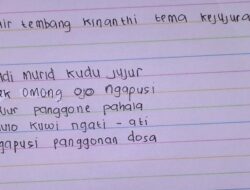 tembang kinanthi tema kejujura
murid kudu jujur
omong ojo ngapusi
panggone pahala
kuwi ngati - ati
gapusi panggonan dosa